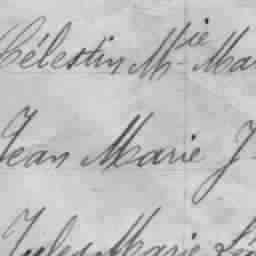 Célestin Mie Mar
Jean Marie J
Jules Marie Lé